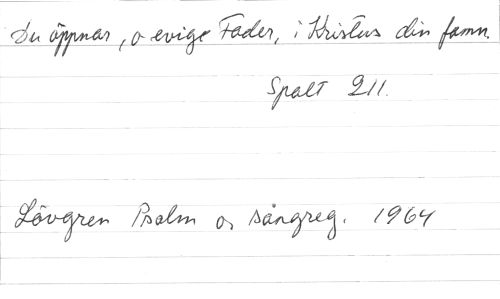 Du öppnar, o evige Fader, i Kristus din famn.
Spalt 211.
Lövgren Psalm o. sångreg. 1964